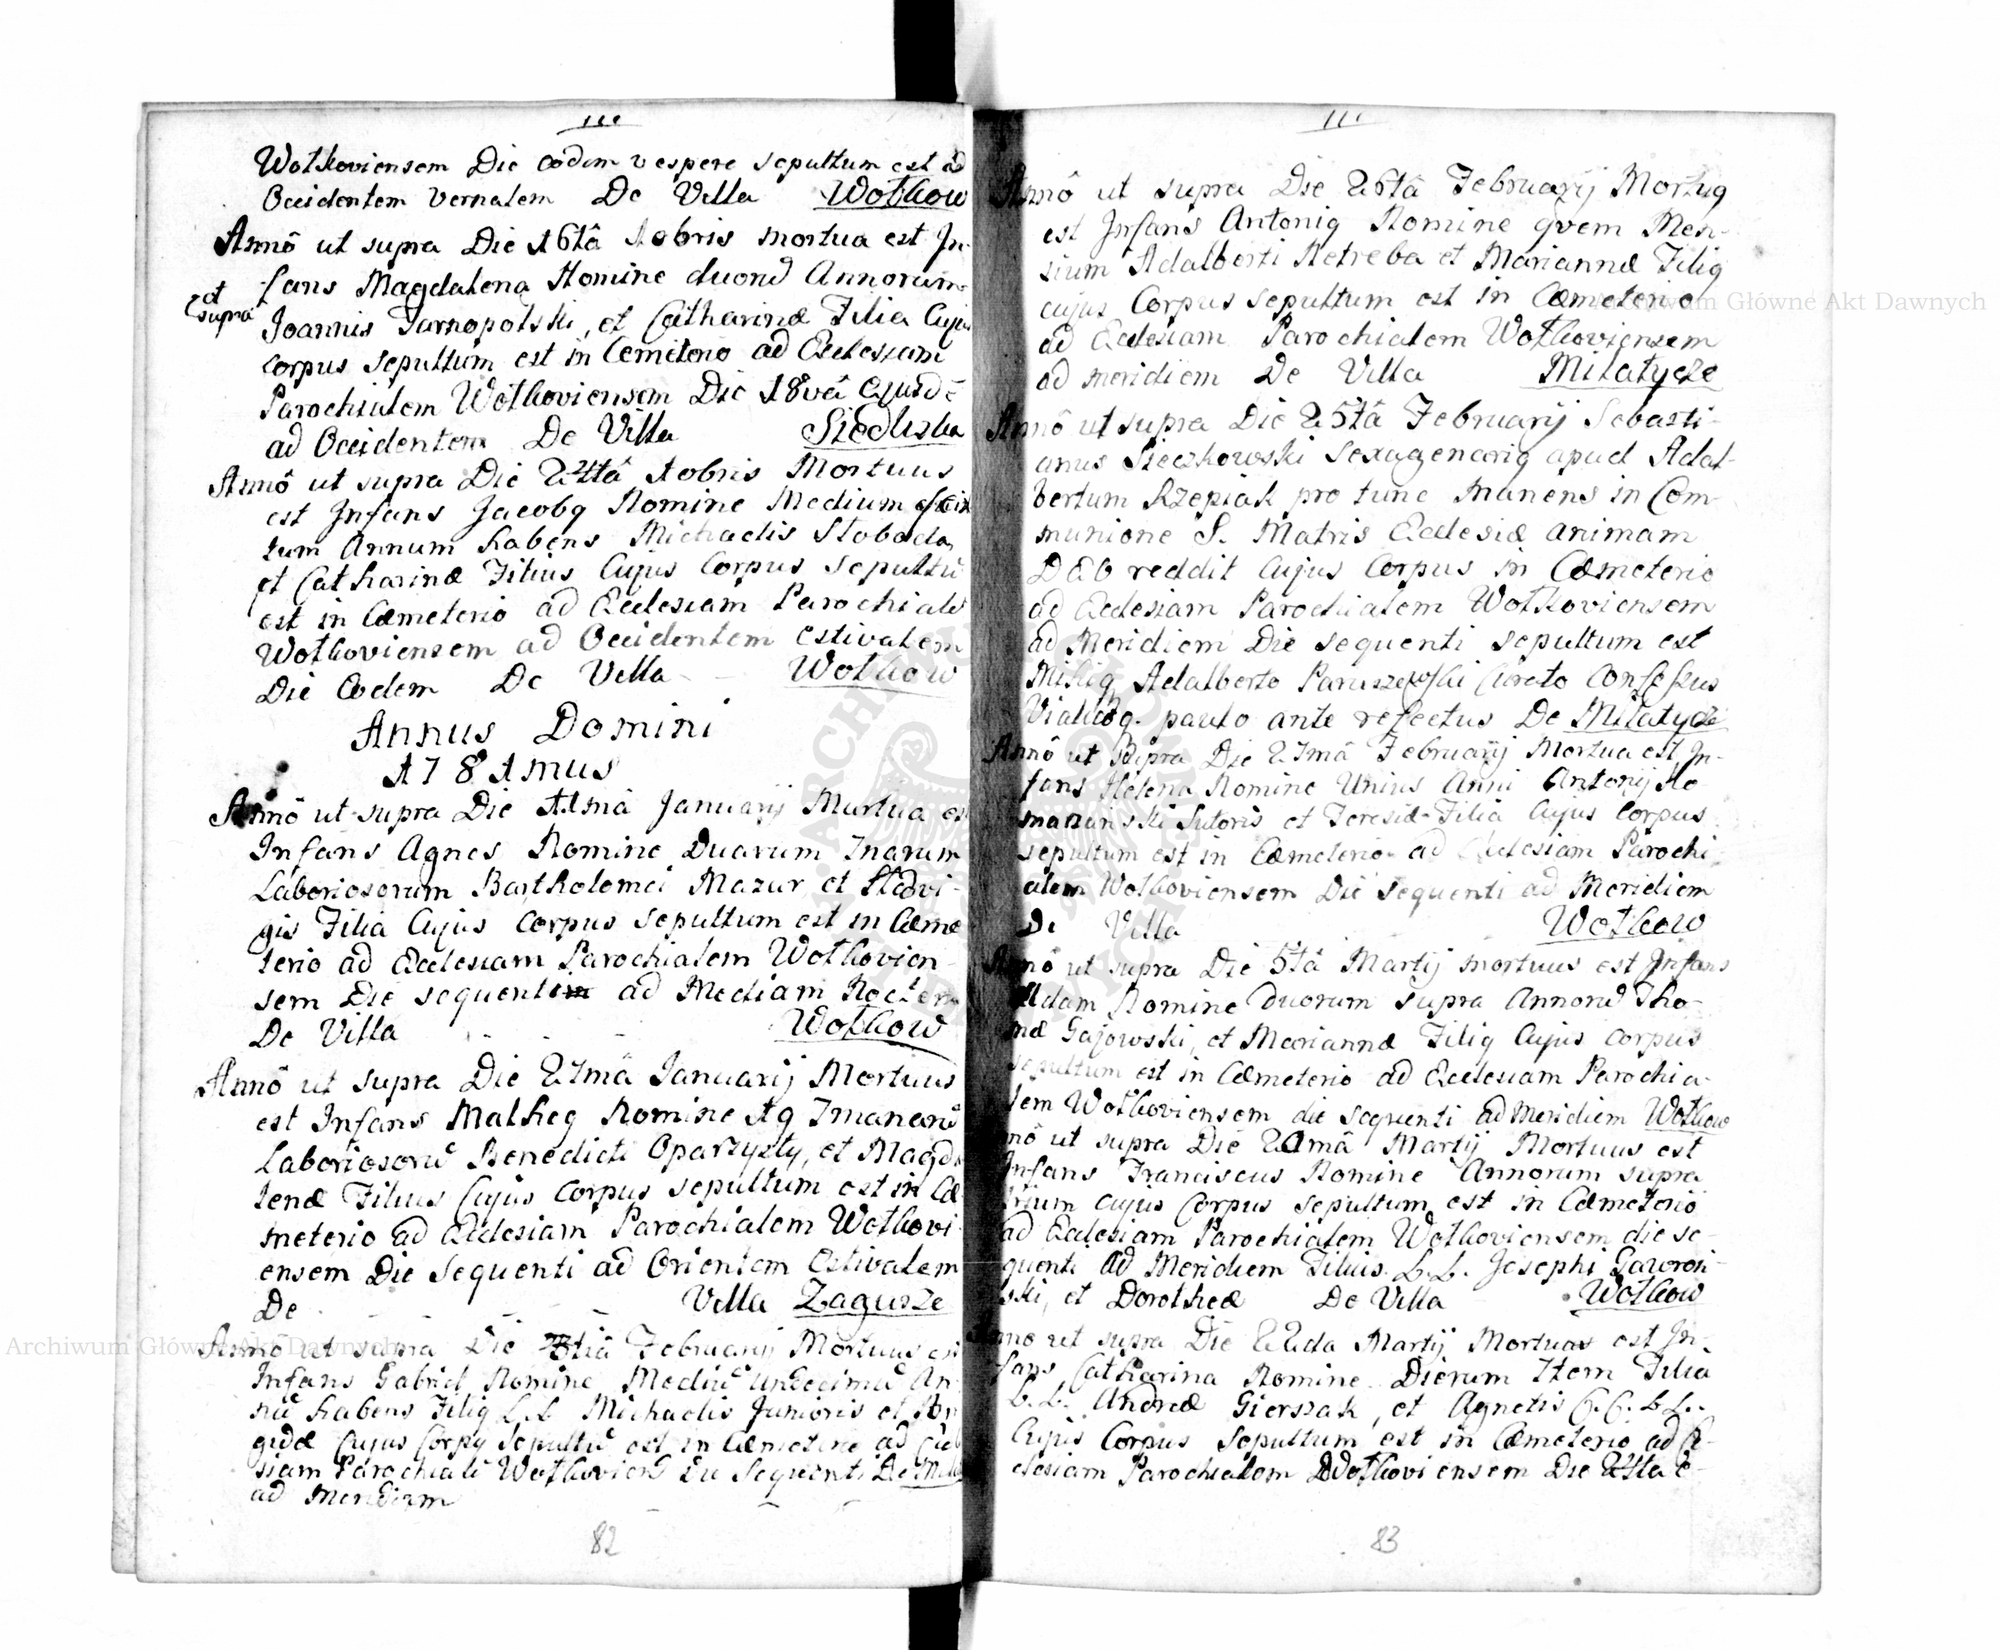 Wołkoviensem Die eodem vespere sepultum est ad
Occidentem vernalem De Villa Wołkow
Annô ut supra Die 16tâ Xobris mortua est In-
fans Magdalena Nomine duorũ Annorum
et supra
Joannis Tarnopolski, et Catharinæ Filia Cujus
corpus sepultum est in Cemeterio ad Ecclesiam
Parochialem Wołkoviensem Die 18vâ ejusdẽ
ad Occidentem De Villa Siedliska
Annô ut supra Die 24tâ Xobris Mortuus
est Infans Jacobq Nomine Medium
tum Annum habens Michaelis Słoboda
et Catharinæ Filius Cujus Corpus Sepultũ
est in Cæmeterio ad Ecclesiam Parochialẽ
Wołkoviensem ad Occidentem estivalem
Die Eodem De Villa Wołkow
Annus Domini
1781mus
Annô ut supra Die 11mâ Januarij Mortua est
Infans Agnes Nomine Duarum
Laboriosorum Bartholomei Mazur et Hedvi-
gis Filia Cujus corpus sepultum est in Cæme
terio ad Ecclesiam Parochialem Wołkovien-
sem Die sequenti ad Mediam Noctem
De Villa Wołkow
Annô ut supra Die 27mâ Januarij Mortuus
est Infans Matheq Nomine
Laboriosorũ Benedicti Oparzysty, et Magda
lenæ Filius Cujus corpus sepultum est in Cæ
meterio ad Ecclesiam Parochialem Wołkovi-
ensem Die Sequenti ad Orientem Estivalem
De Villa Zagusze
Annô ut supra Die Februarij Mortuus est
Infans Gabriel Nomine Mediũ Undecimũ An-
nũ habens Filiq L.L. Michaelis Junioris et
Cujus Corpq Sepultũ est in Cæmeterio ad Eccle
siam Parochialẽ Wołkovien Die Sequenti De
ad Meridiem
82
Annô ut supra Die 26tâ Februarij Mortuq
est Infans Antoniq Nomine qvem Men-
sium Adalberti Netreba et Mariannæ Filiq
cujus Corpus sepultum est in Cæmeterio
ad Ecclesiam Parochialem Wołkoviensem
ad meridiem De Villa Miłatycze
Annô ut supra Die 25tâ Februarij Sebasti-
anus Sieczkowski Sexagenariq apud Adal-
bertum Rzepiak pro tunc manens in Com-
munione S. Matris Ecclesiæ animam
DEO reddit Cujus Corpus in Cæmeterio
ad Ecclesiam Parochialem Wołkoviensem
ad Meridiem Die sequenti sepultum est
Mihiq Adalberto Curato Confessus
Viaticoq. paulo ante refectus De Miłatycze
Annô ut Supra Die 27mâ Februarij Mortua est In-
fans Helena Nomine Unius Anni Antonij Ro-
manski Sutoris et Teresiæ Filia Cujus Corpus
sepultum est in Cæmeterio ad Ecclesiam Parochi-
alem Wołkoviensem Die sequenti ad Meridiem
De Villa Wołkow
Annô ut supra Die 5tâ Martij mortuus est Infans
Adam Nomine Duorum supra Annorũ Tho-
mæ Gajowski, et Mariannæ Filiq Cujus corpus
sepultum est in Cæmeterio ad Ecclesiam Parochia-
lem Wołkoviensem die sequenti ad Meridiem Wołkow
Annô ut supra Die Martij Mortuus est
Infans Franciscus Nomine Annorum supra
trium cujus Corpus sepultum est in Cæmeterio
ad Ecclesiam Parochialem Wołkoviensem die se-
quenti ad Meridiem Filius L.L. Josephi Gaworoń-
ski, et Dorotheæ De Villa Wołkow
Anno ut supra Die 22da Martij Mortua est In-
fans Catharina Nomine Dierum Item Filia
L.L. Andreæ Gierszak, et Agnetis C.C. L.L.
Cujus Corpus Sepultum est in Cæmeterio ad Ec-
clesiam Parochialem Wołkoviensem Die 24ta e-
83
Archiwum Główne Akt Dawnych
Archiwum Główne Akt Dawnych